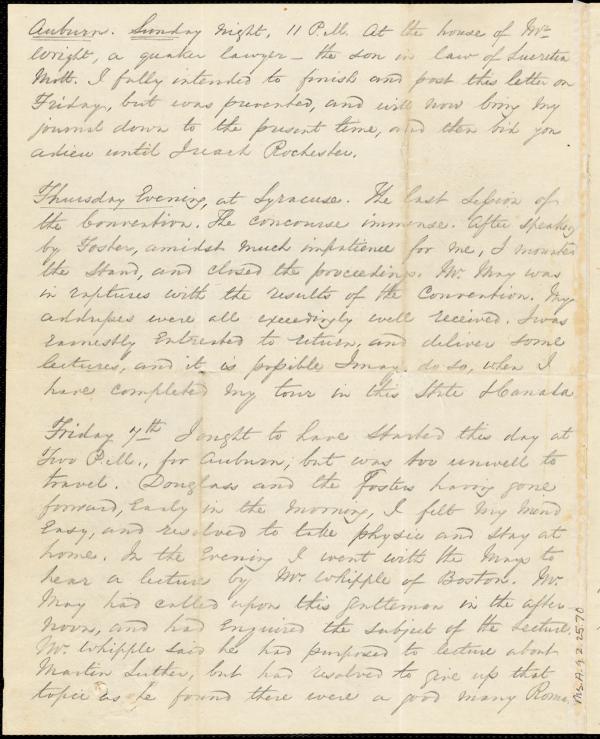 Auburn. Sunday night, 11 P.M. At the house of Mr.
Wright, a quaker lawyer – the son in law of Lucretia
Mott. I fully intended to finish and post this letter on
Friday, but was prevented, and will now bring my
journal down to the present time, and then bid you
adieu until I reach Rochester.
Thursday Evening, at Syracuse. The last Session of
the Convention. The concourse immense. After speaking
by Foster, amidst much impatience for me, I mounted
the Stand, and closed the proceedings. Mr. May was
in raptures with the results of the Convention. My
addresses were all exceedingly well received. I was
earnestly Entreated to return, and deliver some
lectures, and it is possible I may do so, when I
have completed my tour in this State & Canada
Friday 7th I ought to have started this day at
Two P.M., for Auburn, but was too unwell to
travel. Douglass and the Fosters having gone
forward, Early in the morning, I felt my mind
Easy, and resolved to take physic and stay at
home. In the Evening I went with the Mays to
hear a lecture by Mr. Whipple of Boston. Mr.
May had called upon this gentleman in the after-
noon, and had Enquired the subject of the lecture.
Mr. Whipple said he had purposed to lecture about
Martin Luther, but had resolved to give up that
topic as he found there were a good many Roma
Ms.A.9.2.25.70